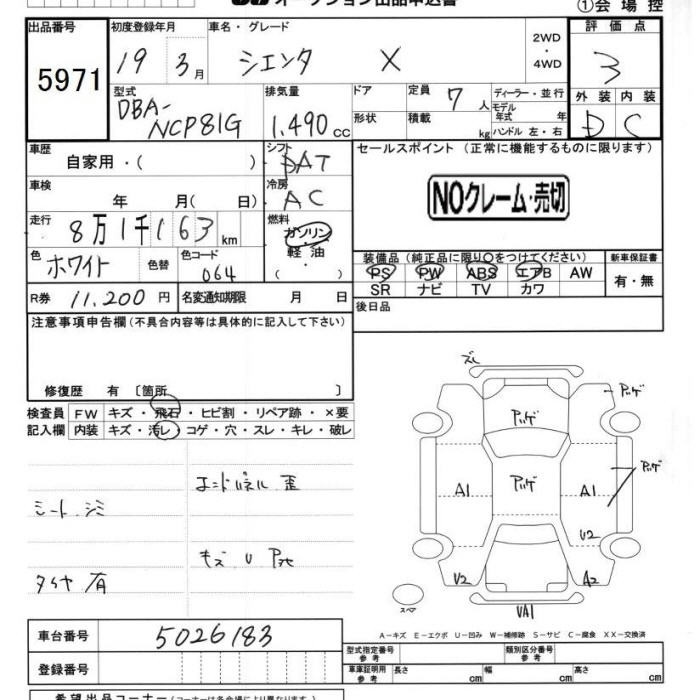 オークション出品申込書
①会場控
出品番号 初度登録年月 車名・グレード 2WD 評価点
5971 19 3月 シエンタ X ・4WD 3
型式 排気量 ドア 定員 7人 ディーラー・並行 外装 内装
DBA- モデル年式 年
NCP81G 1,490cc 形状 積載 kg ハンドル 左・右 D C
車歴 シフト セールスポイント (正常に機能するものに限ります)
自家用・( ) DAT
車検 冷房 NOクレーム・売切
年 月( 日) AC
走行 燃料
8万1千163km ガソリン
・
色 色替 色コード 軽油 装備品 (純正品に限り○をつけてください) 新車保証書
ホワイト 064 ・ PS PW ABS エアB AW 有・無
SR ナビ TV カワ
R券 11,200円 名変通知期限 月 日 後日品
注意事項申告欄 (不具合内容等は具体的に記入して下さい)
修復歴 有 〔箇所 〕
検査員 FW キズ・飛石・ヒビ割・リペア跡・×要
記入欄 内装 キズ・汚レ・コゲ・穴・スレ・キレ・破レ
ズレ
アッゲ アッゲ
エンドパネル 歪 A1 アッゲ A1 アッゲ
シート シミ
U2
キズ U Pネセ
タイヤ 有 U2 A2
スペア UA1
A-キズ E-エクボ U-凹み W-補修跡 S-サビ C-腐食 XX-交換済
車台番号 5026183 型式指定番号 参考 類別区分番号 参考
登録番号 車庫証明用 参考 長さ cm 幅 cm 高さ cm
希望出品コーナー (コーナーは各会場により異なります)